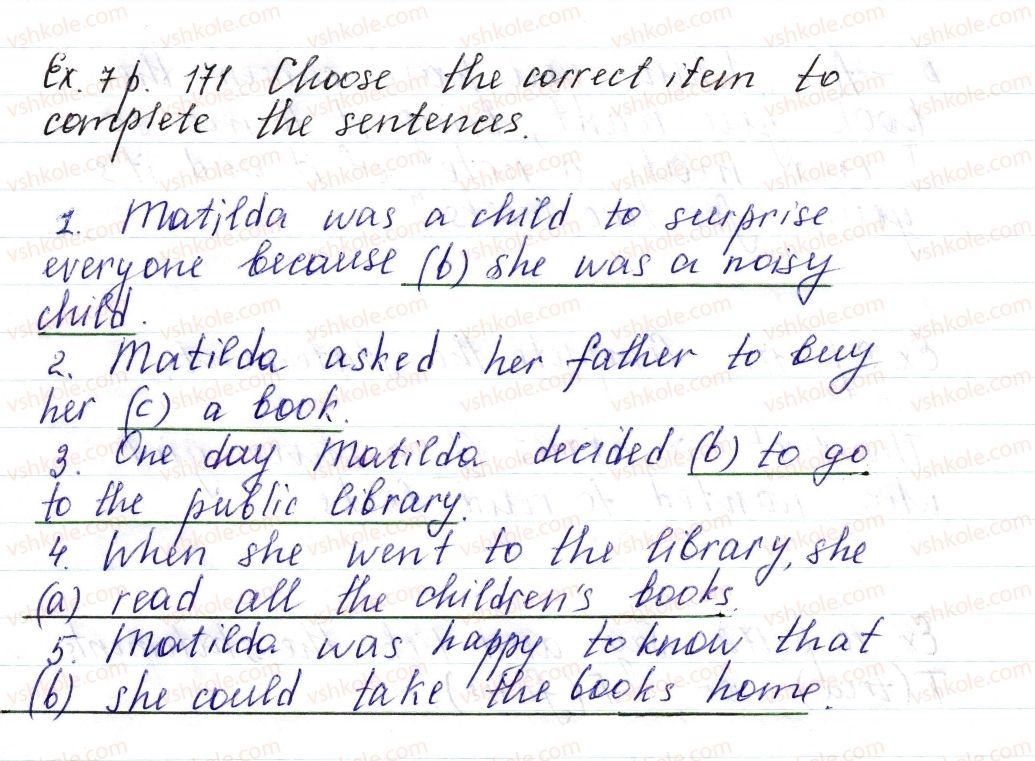 Ex. 7 p. 171 Choose the correct item to
complete the sentences.
1. Matilda was a child to surprise
everyone because (b) she was a noisy
child.
2. Matilda asked her father to buy
her (c) a book.
3. One day Matilda decided (b) to go
to the public library.
4. When she went to the library, she
(a) read all the children's books.
5. Matilda was happy to know that
(b) she could take the books home.